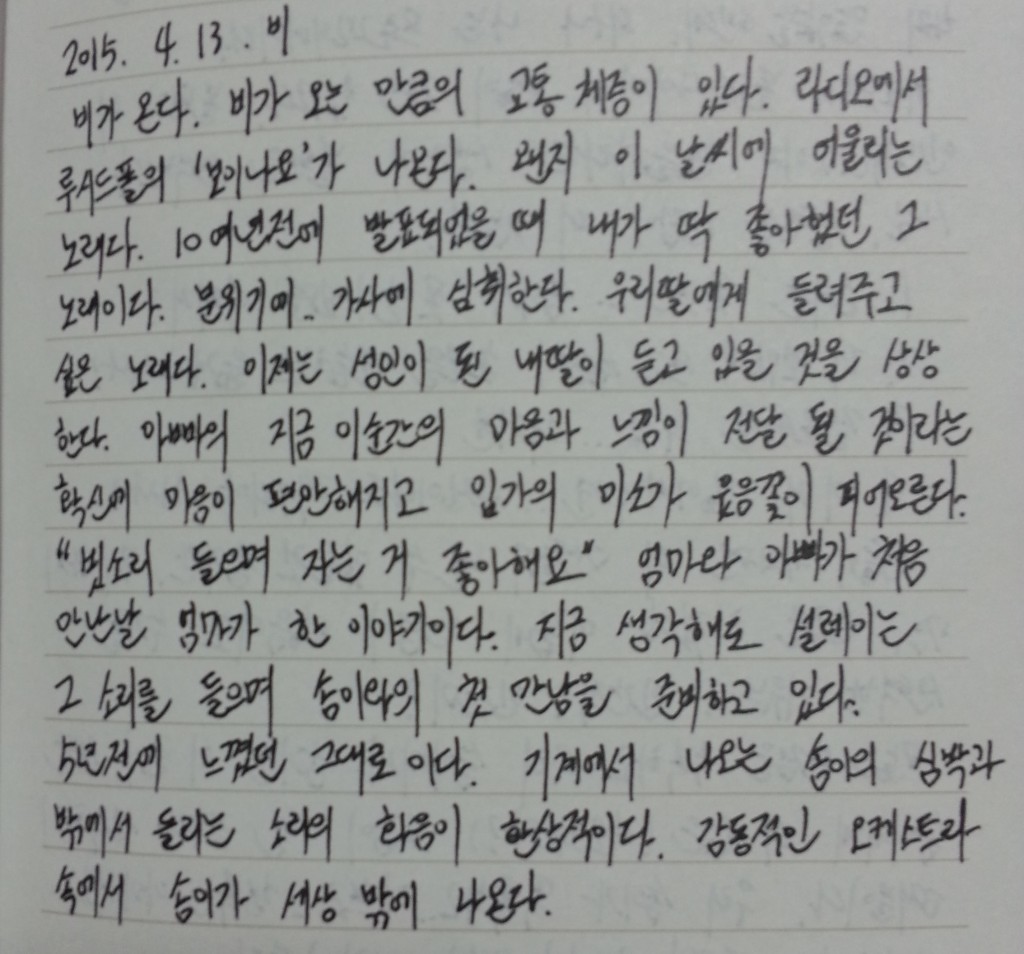 2015. 4. 13. 비
비가 온다. 비가 오는 만큼의 교통 체증이 있다. 라디오에서
루시드폴의 '보이나요'가 나온다. 왠지 이 날씨에 어울리는
노래다. 10여년전에 발표되었을 때 내가 딱 좋아했던 그
노래이다. 분위기에.. 가사에 심취한다. 우리딸에게 들려주고
싶은 노래다. 이제는 성인이 된 내딸이 듣고 있을 것을 상상
한다. 아빠의 지금 이순간의 마음과 느낌이 전달 될 것이라는
확신에 마음이 편안해지고 입가의 미소가 웃음꽃이 피어오른다.
"빗소리 들으며 자는 거 좋아해요" 엄마와 아빠가 처음
만난날 엄마가 한 이야기이다. 지금 생각해도 설레이는
그 소리를 들으며 송이와의 첫 만남을 준비하고 있다.
5년전에 느꼈던 그대로이다. 기계에서 나오는 송이의 심박과
밖에서 들리는 소리의 화음이 환상적이다. 감동적인 오케스트라
속에서 송이가 세상 밖에 나온다.